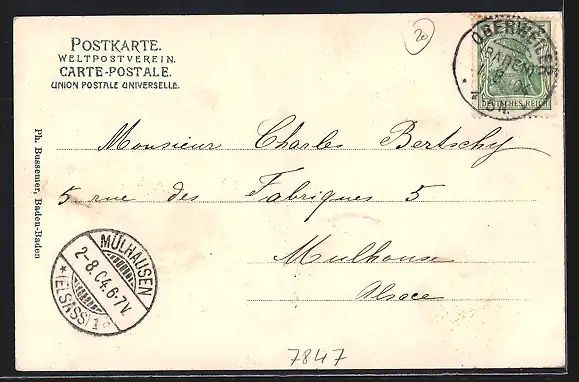 POSTKARTE.
WELTPOSTVEREIN.
CARTE-POSTALE.
UNION POSTALE UNIVERSELLE.
20
OBERWEILER
DEUTSCHES REICH
Monsieur Charles Bertschy
5 rue des Fabriques 5
Mulhouse
Alsace
Ph. Bussemer, Baden-Baden
MÜLHAUSEN
2-8.04.6-7V.
*(ELSASS)1
7847